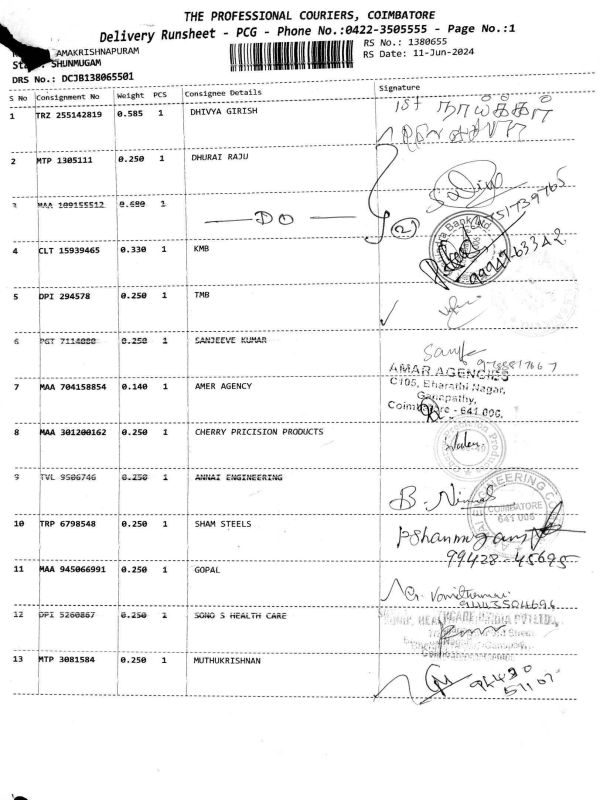 THE PROFESSIONAL COURIERS, COIMBATORE
Delivery Runsheet - PCG - Phone No.:0422-3505555 - Page No.:1
RS No.: 1380655
AMAKRISHNAPURAM
RS Date: 11-Jun-2024
SHUNMUGAM
DRS No.: DCJB138065501
S No Consignment No Weight PCS Consignee Details Signature
1 TRZ 255142819 0.585 1 DHIVYA GIRISH
1st
2 MTP 1305111 0.250 1 DHURAI RAJU
3 MAA 109155512 0.680 1
DO (2)
4 CLT 15939465 0.330 1 KMB
Bank Ltd
99947-63342
5 DPI 294578 0.250 1 TMB
6 PGT 7114080 0.250 1 SANJEEVE KUMAR
AMAR AGENCIES
7 MAA 704158854 0.140 1 AMER AGENCY
C105, Bharathi Nagar,
Ganapathy,
Coimbatore - 641 006.
8 MAA 301200162 0.250 1 CHERRY PRICISION PRODUCTS
9 TVL 9506746 0.250 1 ANNAI ENGINEERING
B. Nirmal
COIMBATORE
641 006
10 TRP 6798548 0.250 1 SHAM STEELS
Pshanmugam
99428-45695
11 MAA 945066991 0.250 1 GOPAL
12 DPI 5260867 0.250 1 SONO S HEALTH CARE
13 MTP 3081584 0.250 1 MUTHUKRISHNAN